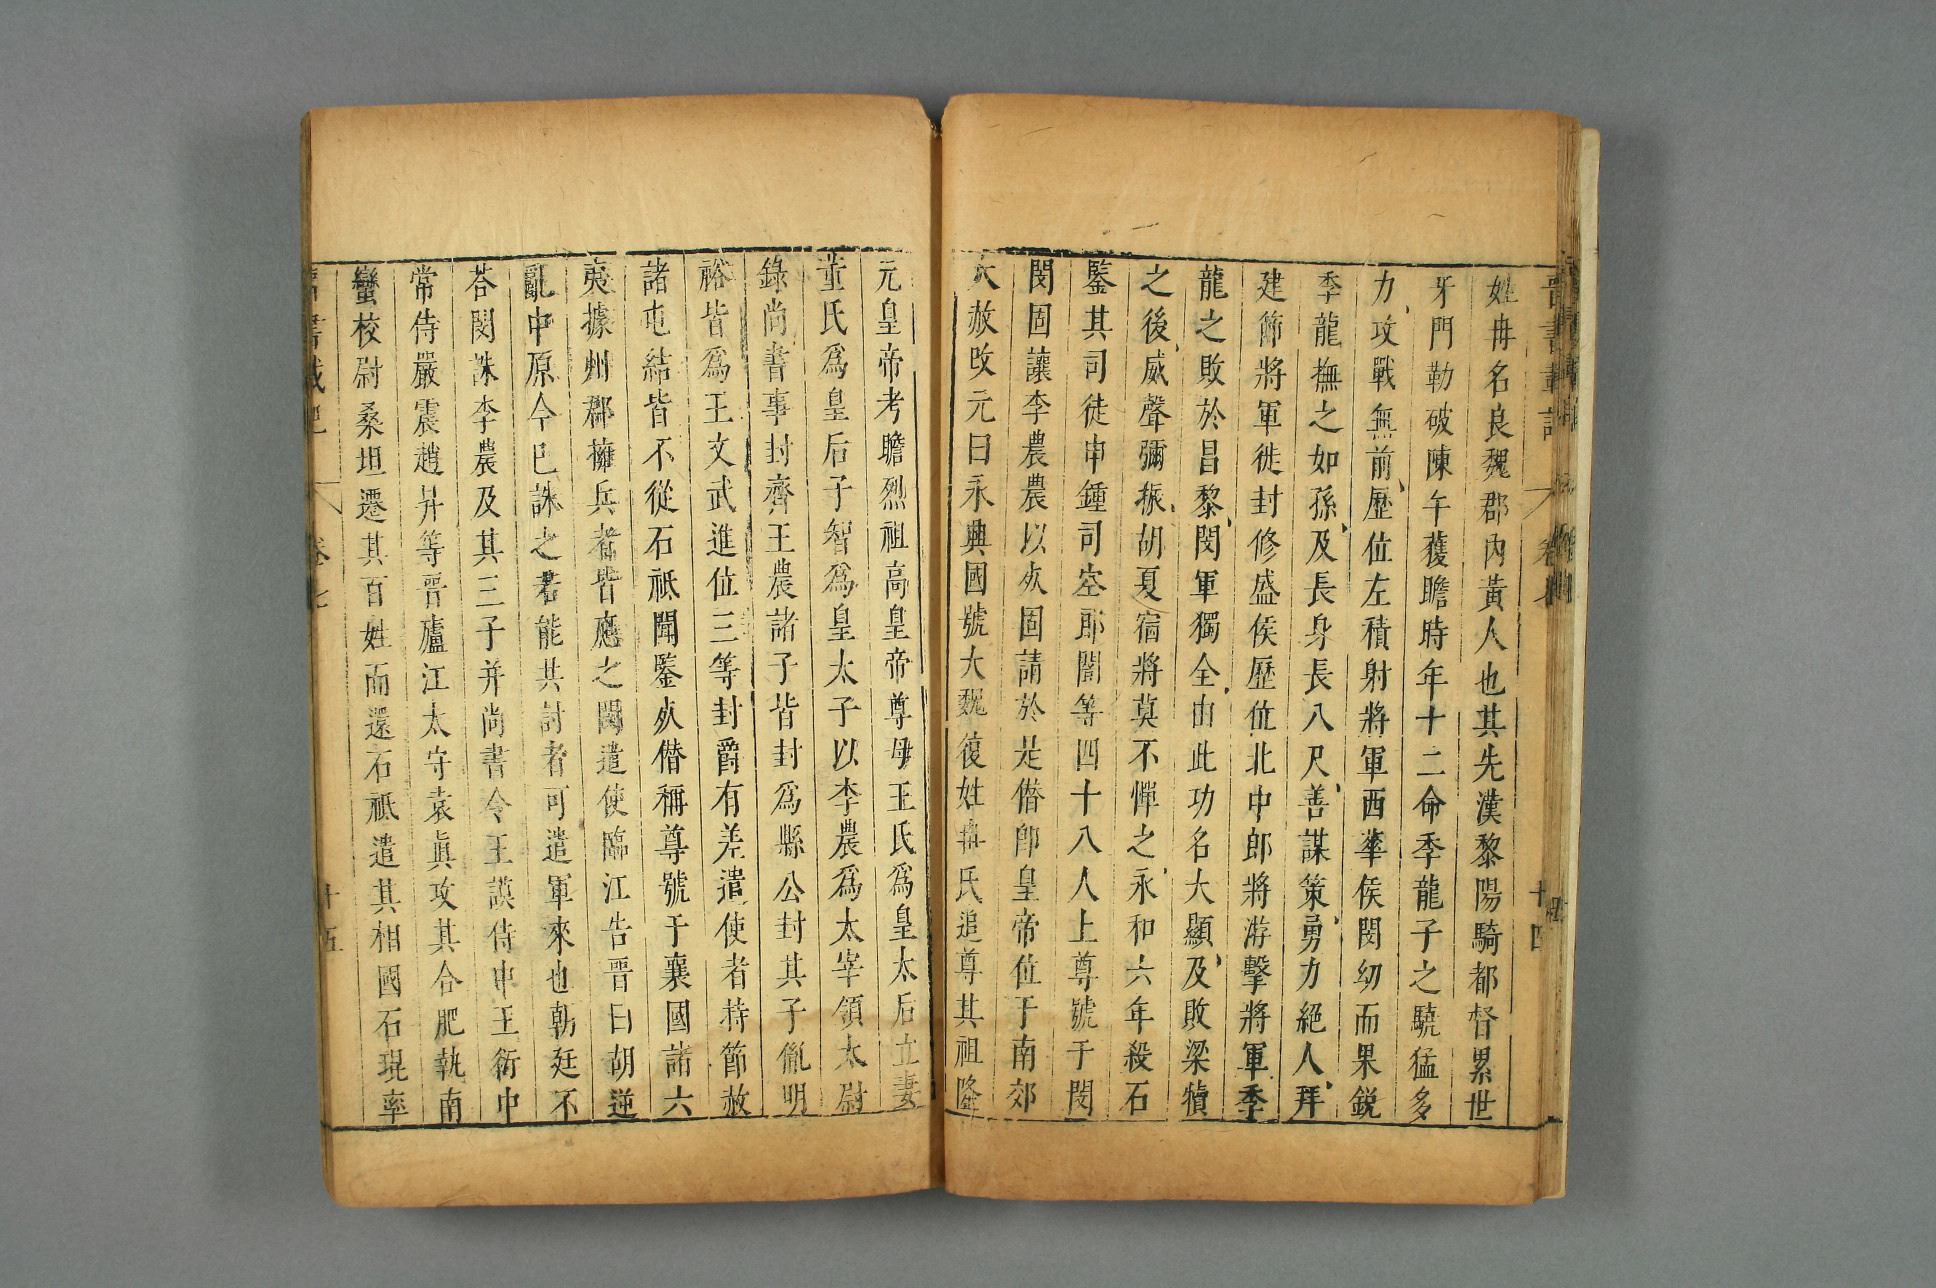 晉書載記
卷七
十四
姓冉名良魏郡內黃人也其先漢黎陽騎都督累世
牙門勒破陳午獲瞻時年十二命季龍子之驍猛多
力攻戰無前歷位左積射將軍西華侯閔幼而果銳
季龍撫之如孫及長身長八尺善謀策勇力絕人拜
建節將軍徙封修盛侯歷位北中郎將游擊將軍季
龍之敗於昌黎閔軍獨全由此功名大顯及敗梁犢
之後威聲彌振胡夏宿將莫不憚之永和六年殺石
鑒其司徒申鍾司空郎闓等四十八人上尊號于閔
閔固讓李農農以死固請於是僭卽皇帝位于南郊
大赦改元曰永興國號大魏復姓冉氏追尊其祖隆
元皇帝考瞻烈祖高皇帝尊母王氏爲皇太后立妻
董氏爲皇后子智爲皇太子以李農爲太宰領太尉
錄尚書事封齊王農諸子皆封爲縣公封其子胤明
裕皆爲王文武進位三等封爵有差遣使者持節赦
諸屯結皆不從石祗聞鑒死僭稱尊號于襄國諸六
夷據州郡擁兵者皆應之閔遣使臨江告晉曰胡逆
亂中原今已誅之若能共討者可遣軍來也朝廷不
荅閔誅李農及其三子并尚書令王謨侍中王衍中
常侍嚴震趙昇等晉廬江太守袁眞攻其合肥執南
蠻校尉桑坦遷其百姓而還石祗遣其相國石琨率
晉書載記
卷七
十五